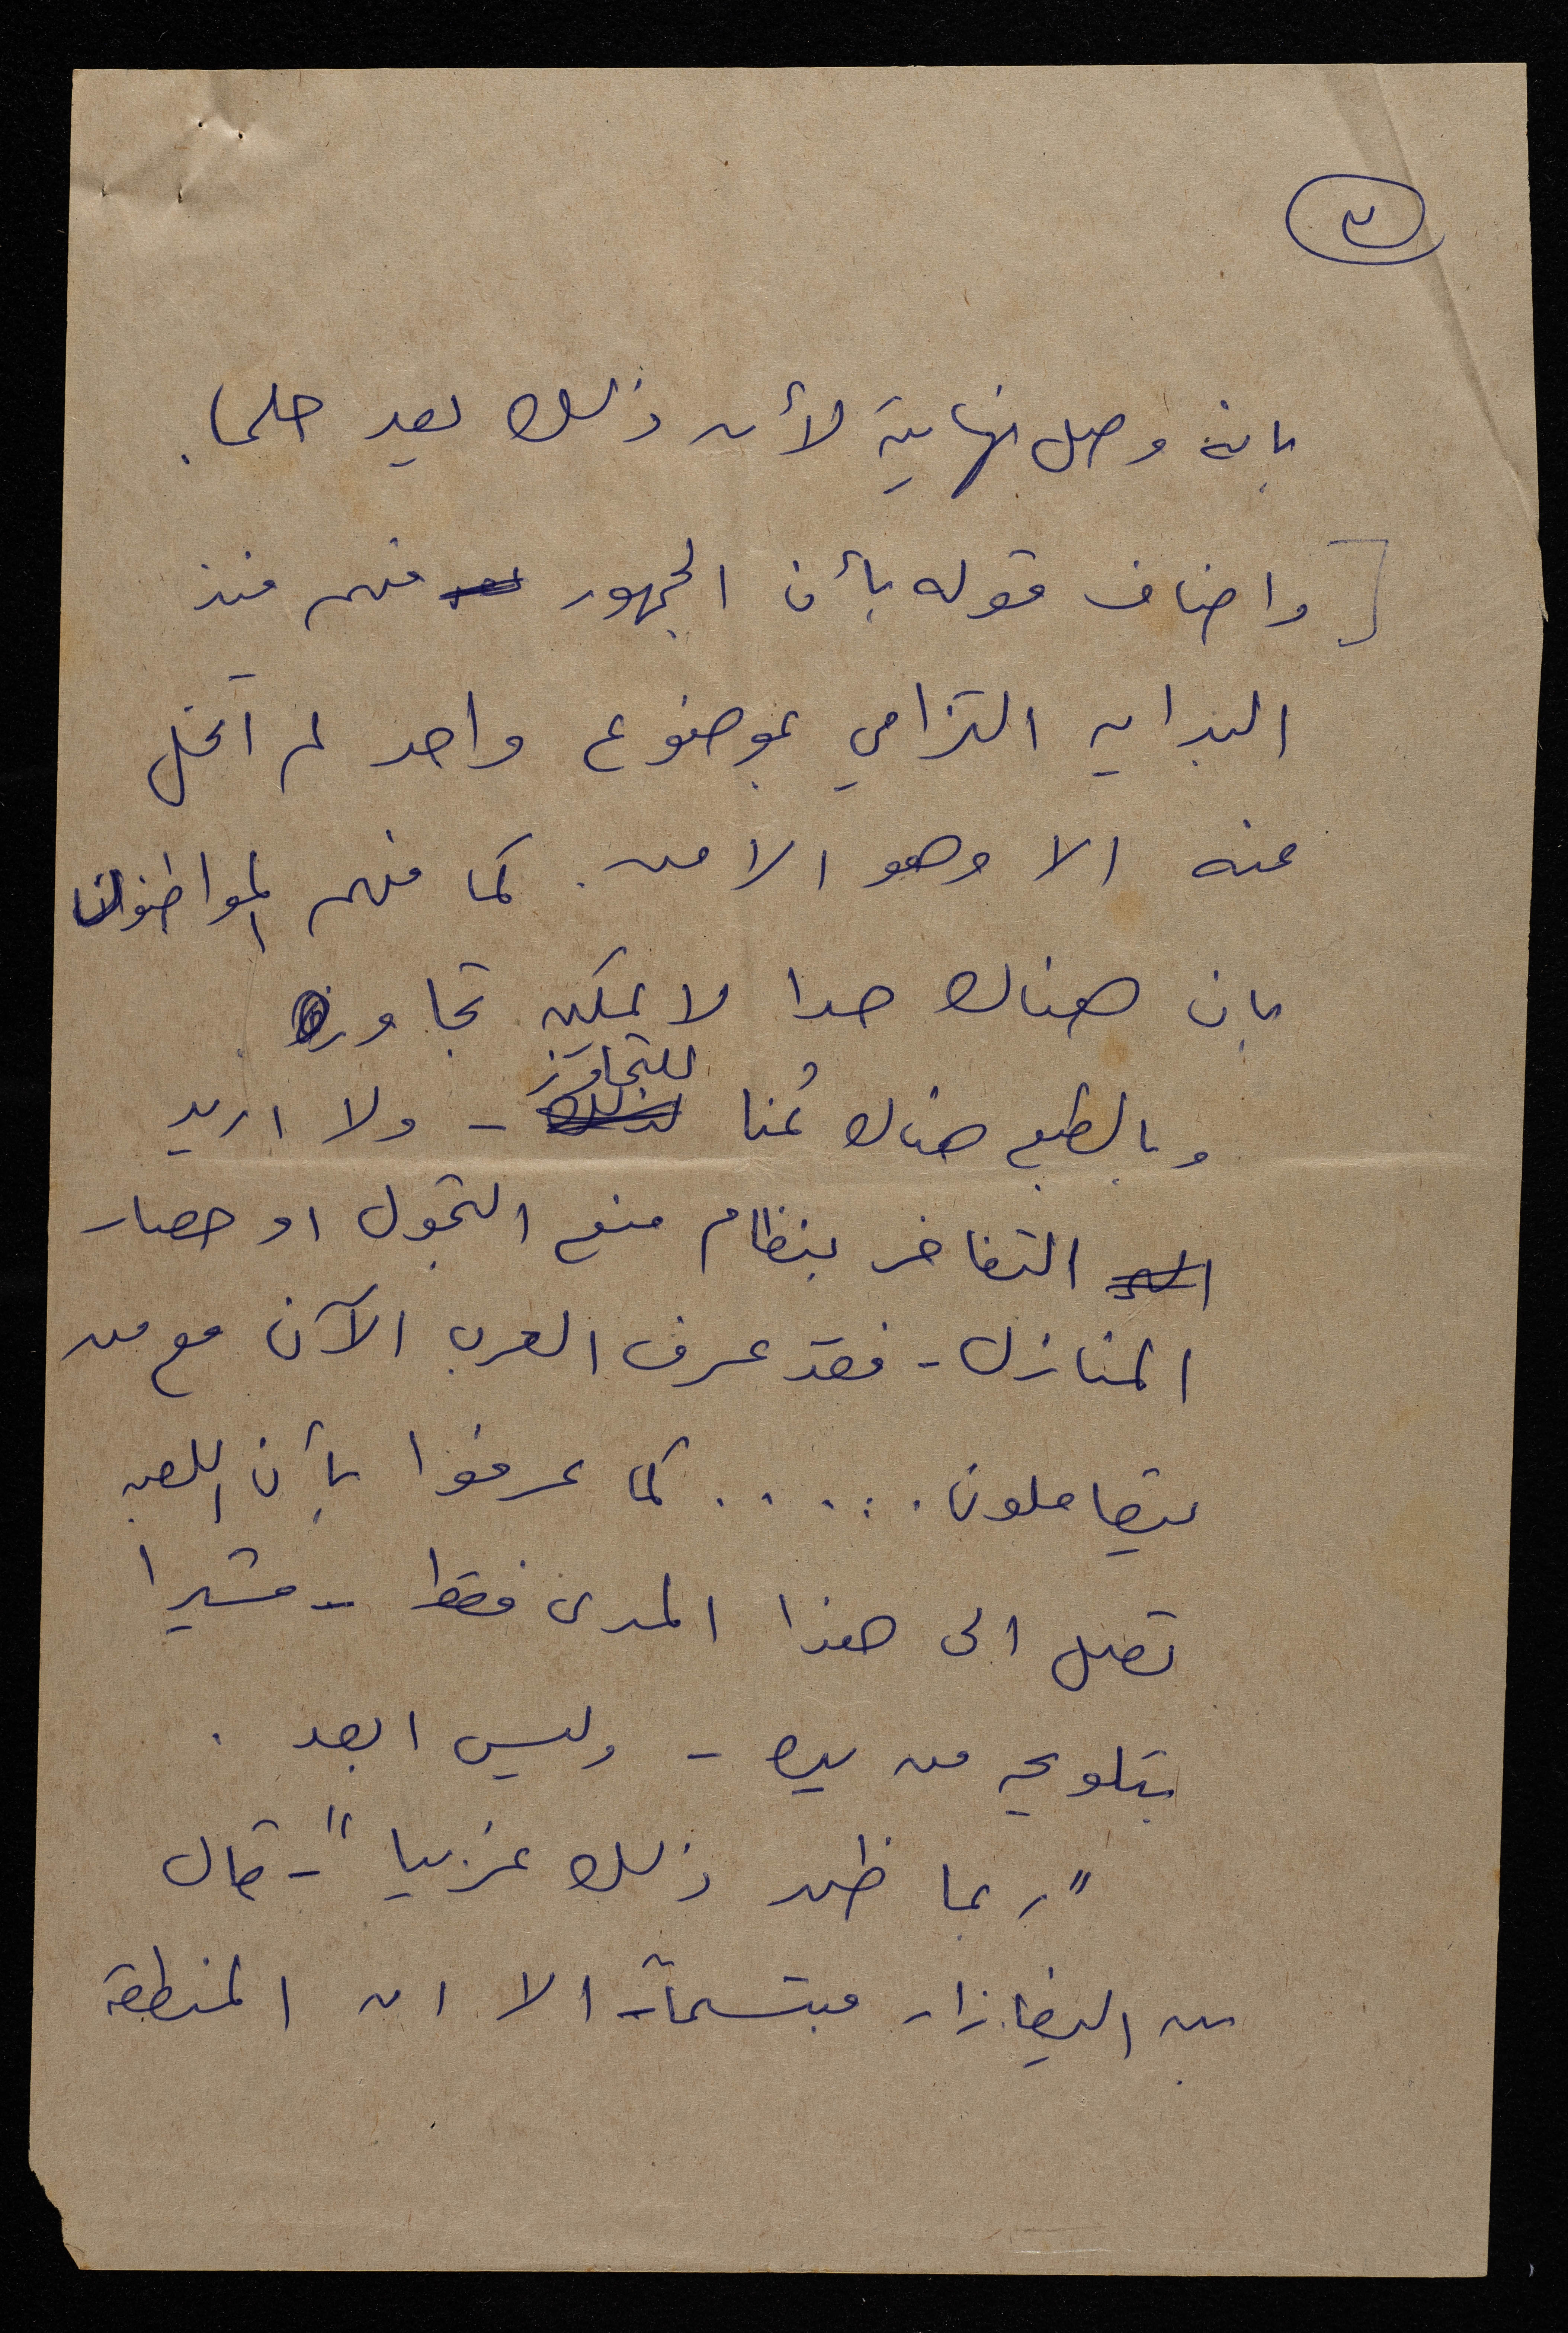 بانه وصل نهايته لأن ذلك يعد حلما.
[واضاف قوله بأن الجمهور فهم منذ
البدايه التزامي بموضوع واحد لم اتخل
عنه الا وهو الامن. كما فهم المواطنون
بان هناك حدا لا يمكن تجاوزه.
وبالطبع هناك ثمنا للتجاوز - ولا اريد
التفاخر بنظام منع التجول او حصار
المنازل - فقد عرف العرب الآن مع من
يتعاملون...... كما عرفوا بأن اللعبه
تصل الى هذا المدى فقط - مشيرا
بتلويحه من يده - وليس ابعد.
"ربما ظهر ذلك غريبا" - قال
بن اليعازار مبتسماً - الا ان المنطقة